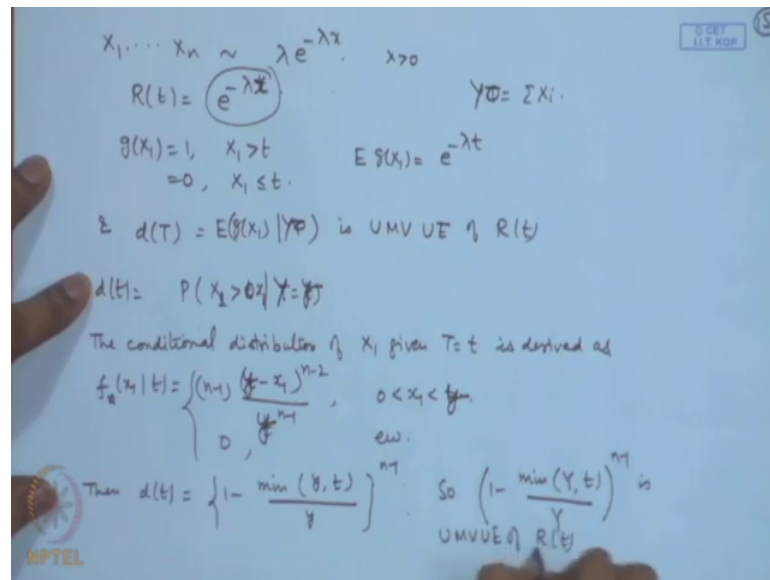 X₁, .... Xₙ ~ λe^{-λx}. x>0
© CET
I.I.T. KGP
R(t) = e^{-λt} Y = ΣXᵢ.
g(X₁) = 1, X₁ > t E g(X₁) = e^{-λt}
= 0, X₁ ≤ t.
& d(T) = E(g(X₁) | Y) is UMVUE of R(t)
d(t) = P(X₁ > x | Y = y)
The conditional distribution of X₁ given T = t is derived as
f(x₁|t) = { (n-1) (y-x₁)^{n-2} / y^{n-1}, 0 < x₁ < y
0, ew.
Then d(t) = {1 - min(y, t) / y}^{n-1}. So (1 - min(Y, t) / Y)^{n-1} is
UMVUE of R(t)
NPTEL